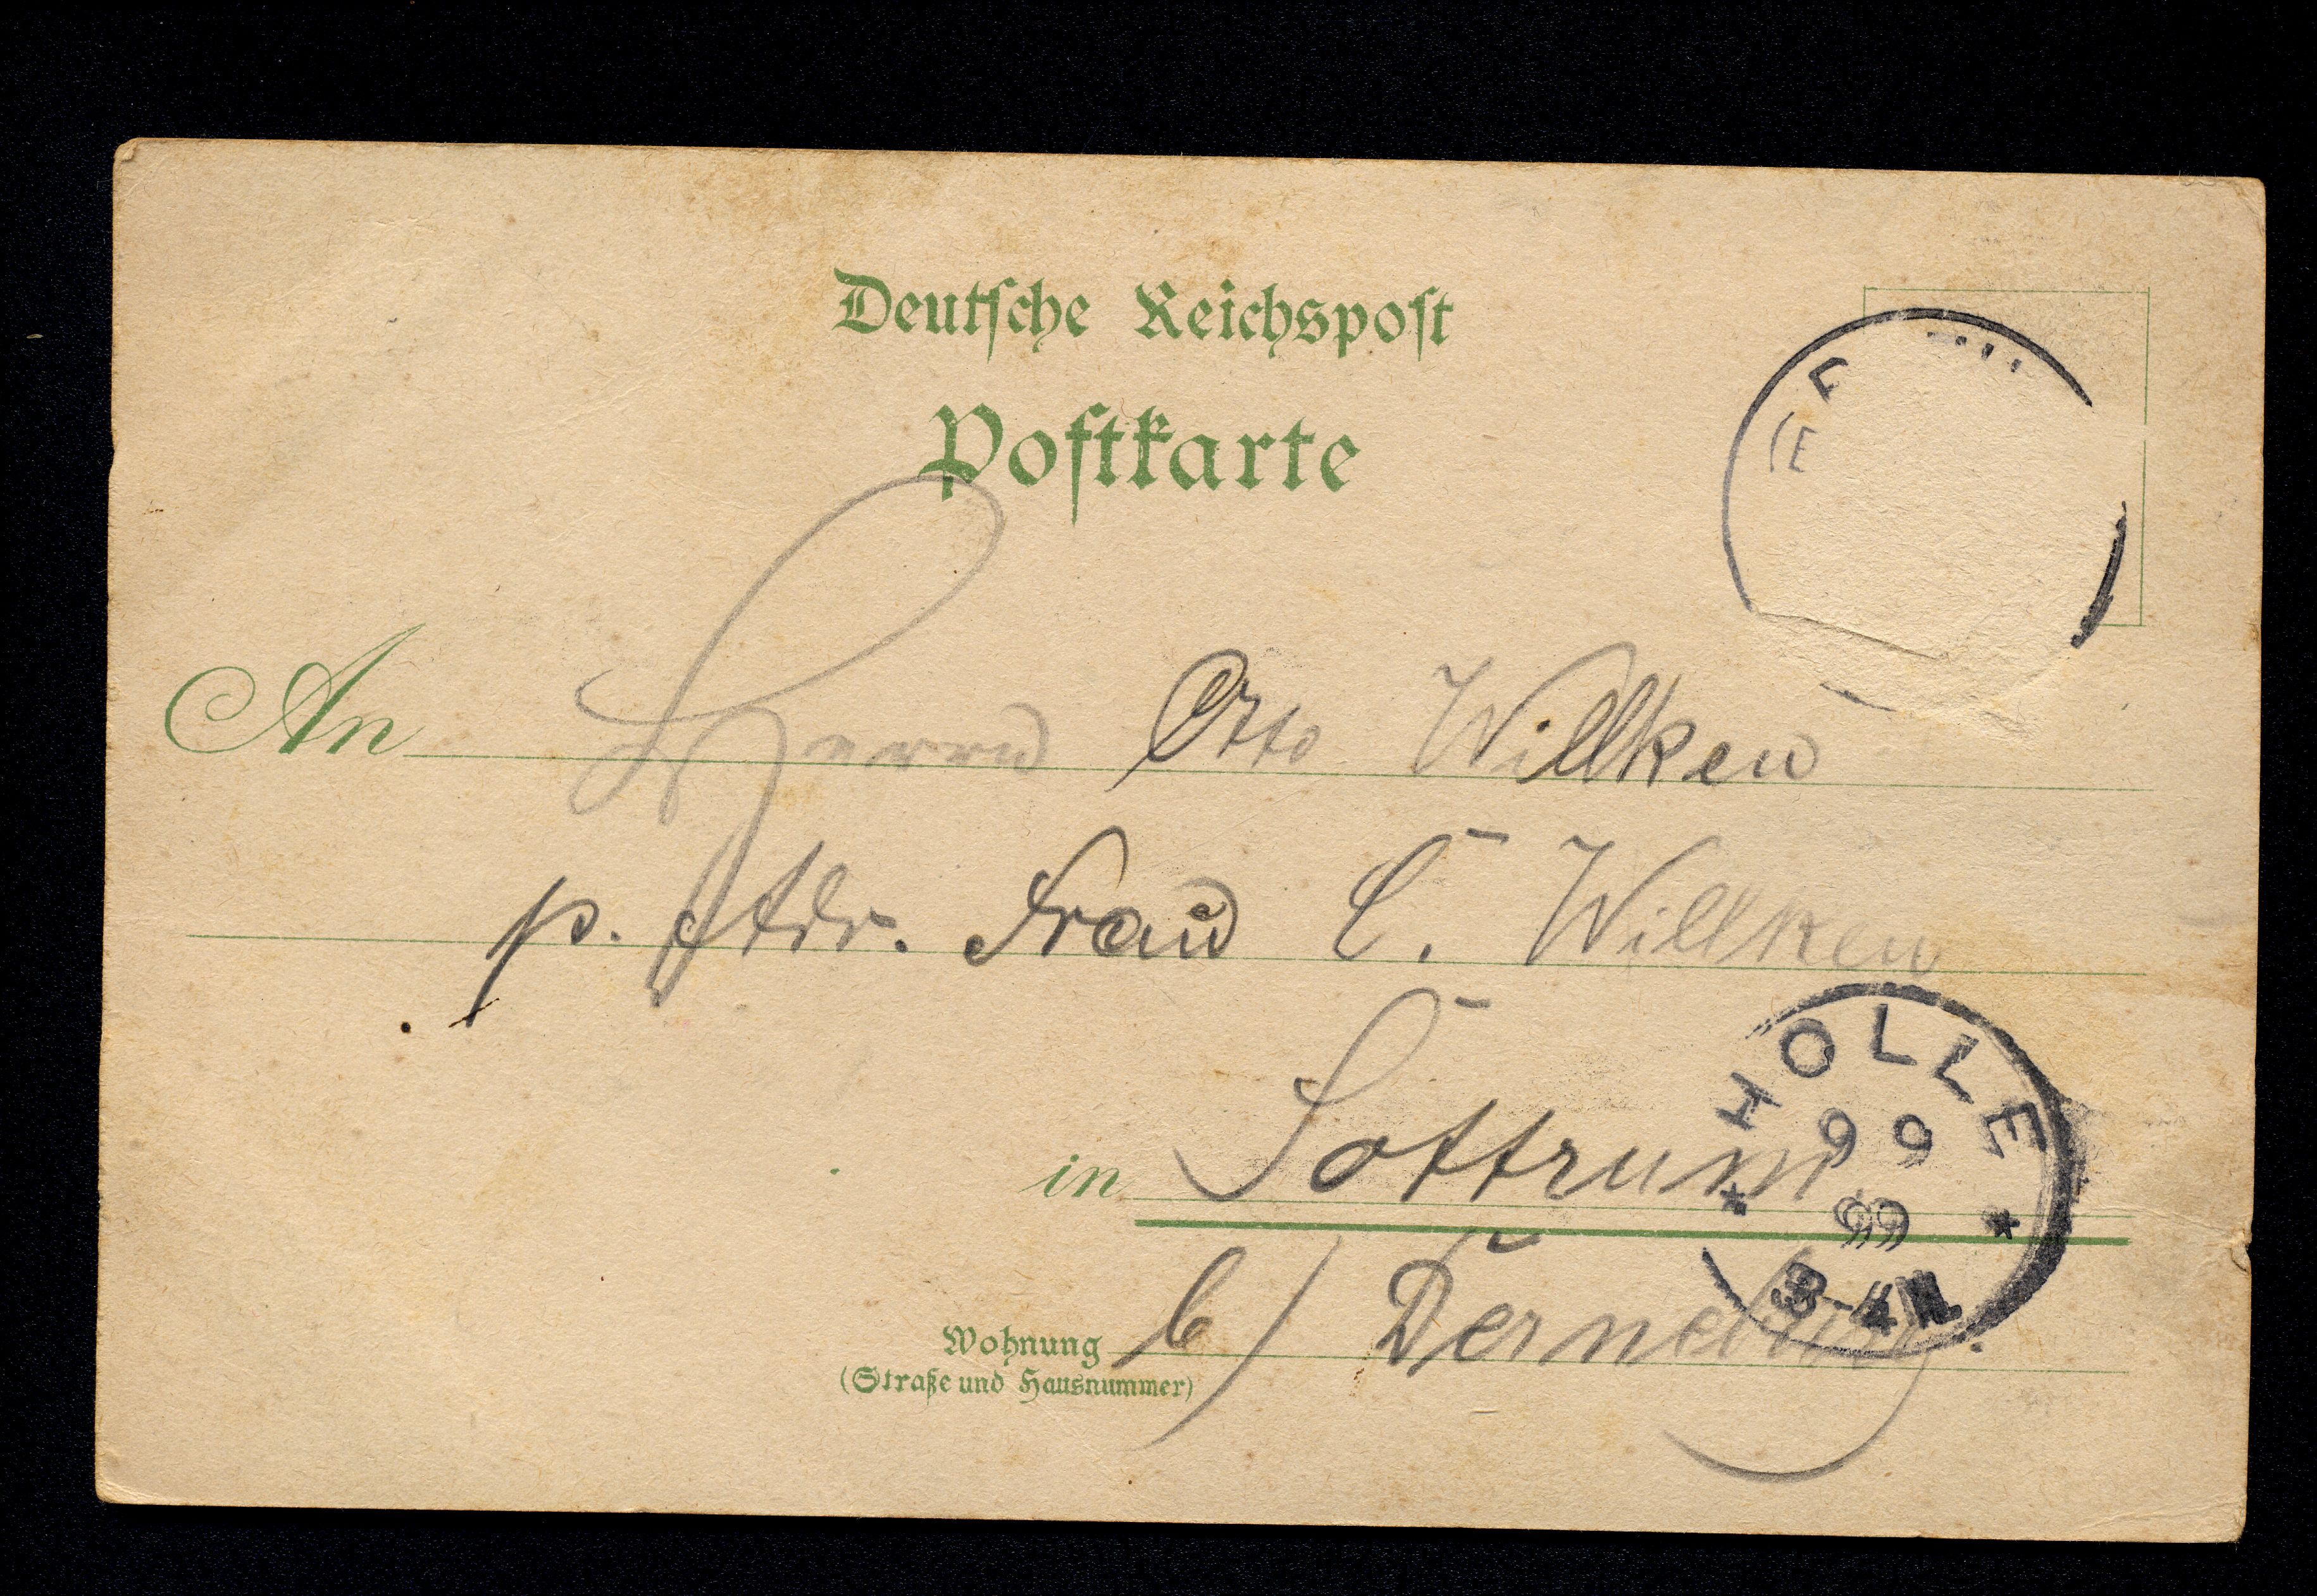 Deutsche Reichspost
Postkarte
An Herrn Otto Willken
p. Adr. Frau C. Willken
in Sottrum
b/ Derneburg.
Wohnung
(Straße und Hausnummer)
HOLLE
9 6
99
3-4N